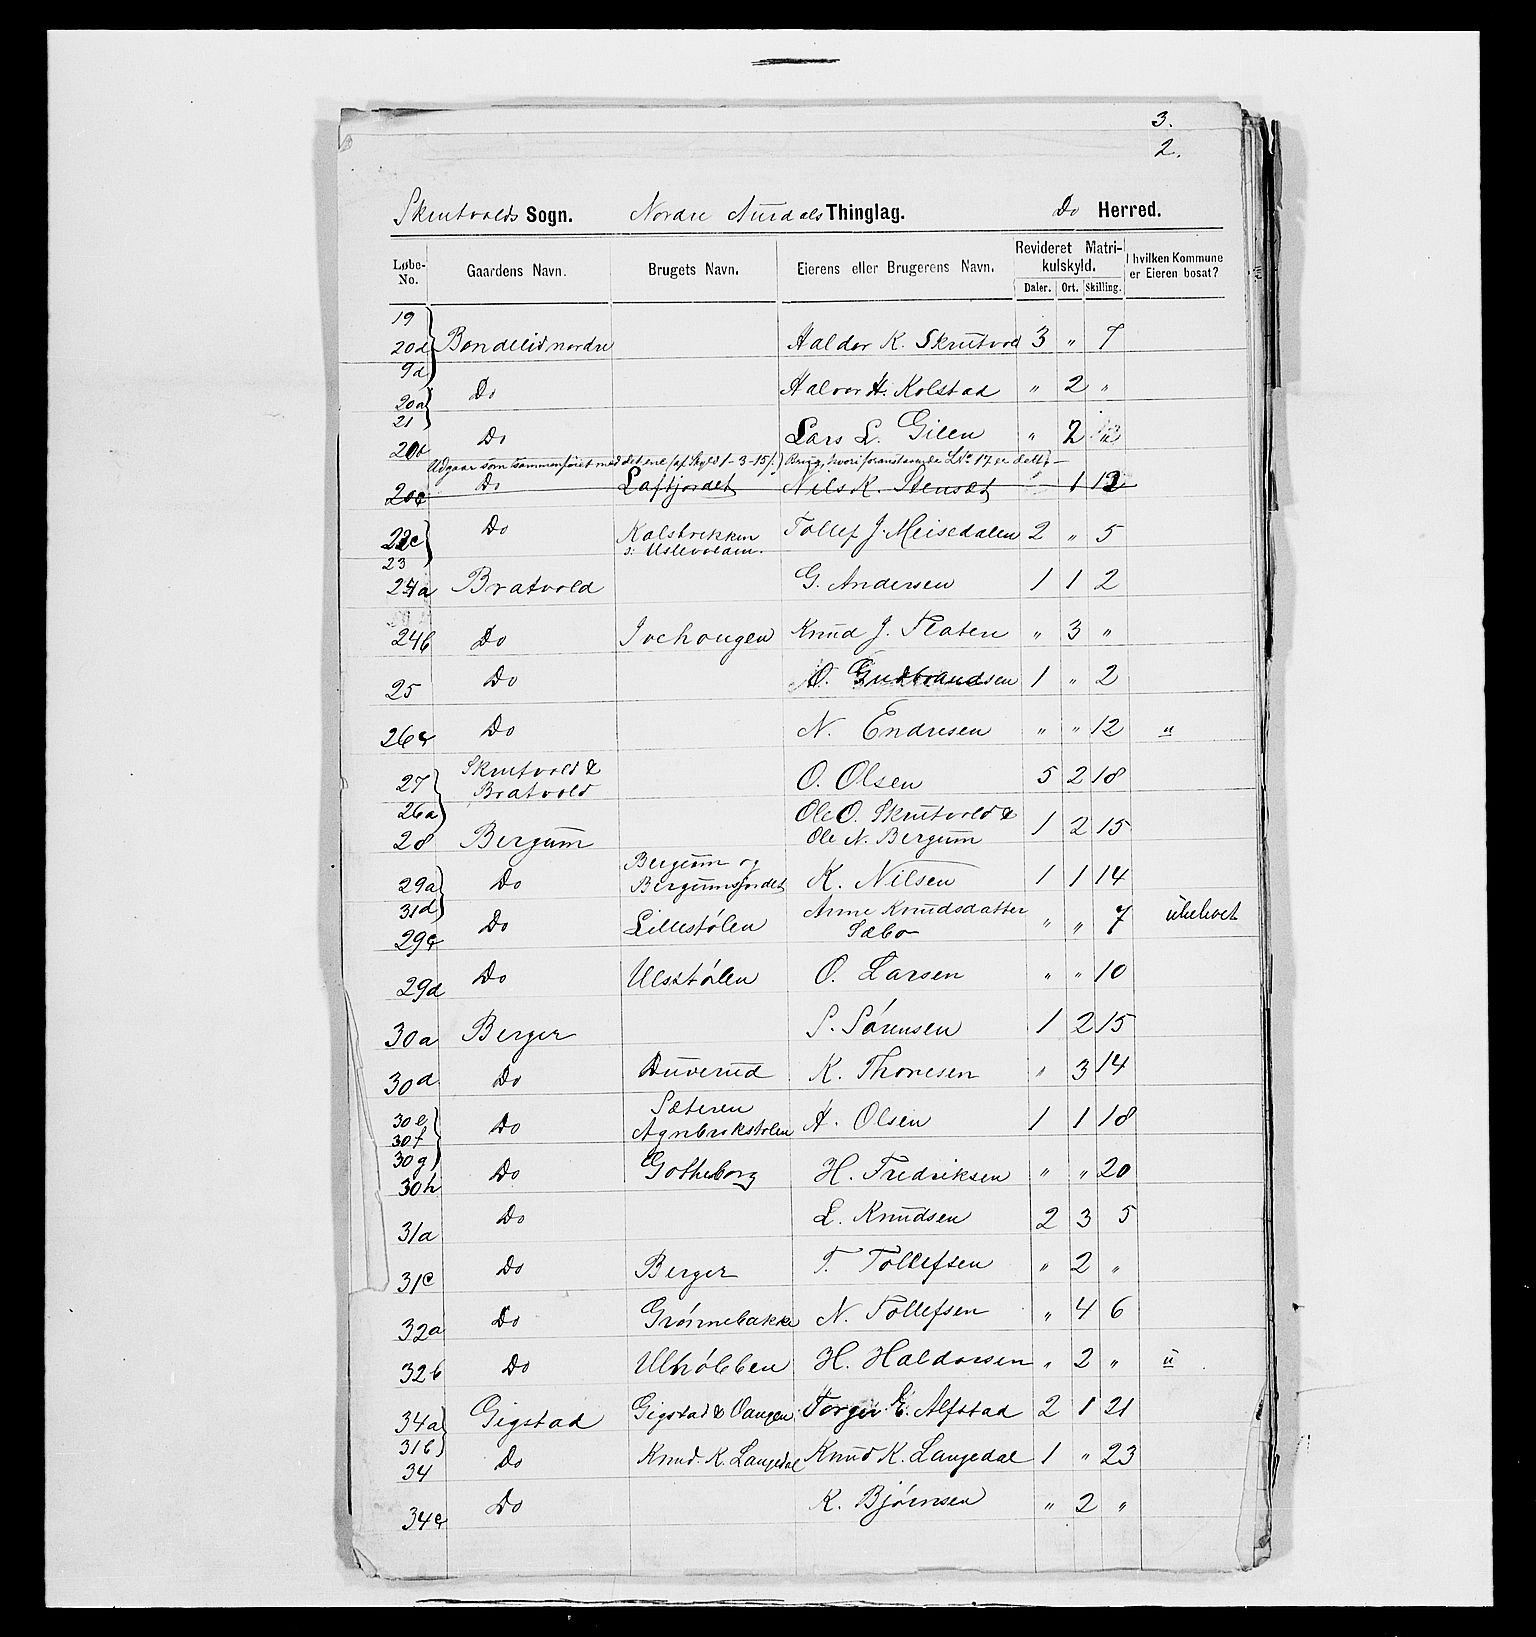 3.
2.
Skrutvolds Sogn. Nordre Aurdals Thinglag. Do Herred.
Løbe-No. Gaardens Navn. Brugets Navn. Eierens eller Brugerens Navn. Revideret Matrikulskyld. I hvilken Kommune er Eieren bosat?
Daler. Ort. Skilling.
19
20d Bondelid nordre Haldor K. Skrutvold 3 " 7
9d
20a Do Halvor H. Kolstad " 2 "
21
20b Do Lars L. Gilen " 2
Udgaar som sammenføiet med det ene (af Skyld 1-3-15 ß.) Brug, hvori foranstaaende LNo 17 er delt. —
20c Do Løftjordet Nils K. Stensæt " 1 12
22c Do Kalsbrekken Tollef J. Meisedalen 2 " 5
23
24a Bratvold G. Andersen 1 1 2
24b Do Ivehougen Knud J. Fløten " 3 "
25 Do O. Gudbrandsen 1 " 2
26c Do N. Endresen " " 12 "
27 Skrutvold & Bratvold O. Olsen 5 2 18
26a
28 Bergum Ole O. Skrutvold & Ole N. Bergum 1 2 15
29a Do Bergum og Bergumsjordet K. Nilsen 1 1 14
31d
29c Do Lillestølen Anne Knudsdatter Sæbo " " 7 ubeboet
29d Do Ulsstølen O. Larsen " " 10
30a Berger S. Sørensen 1 2 15
30d Do Duverud K. Thoresen " 3 14
30e Do Sæteren A. Olsen 1 1 18
30f
30g
30h Do Gotheborg H. Fredriksen " " 20
31a Do L. Knudsen 2 3 5
31c Do Berger T. Tollefsen " 2 "
32a Do Grønnebakke N. Tollefsen " 4 6
32b Do Ulhølben H. Haldorsen " 2 " "
34a Gigstad Gigstad & Vangen Torger E. Alfstad 2 1 21
31b
34 Do Knud K. Langedal Knud K. Langedal 1 " 23
34c Do K. Bjørnsen " 2 "